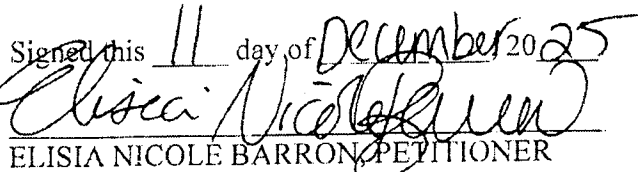 Signed this 11 day of December 2025
Elisia Nicole Barron
ELISIA NICOLE BARRON, PETITIONER